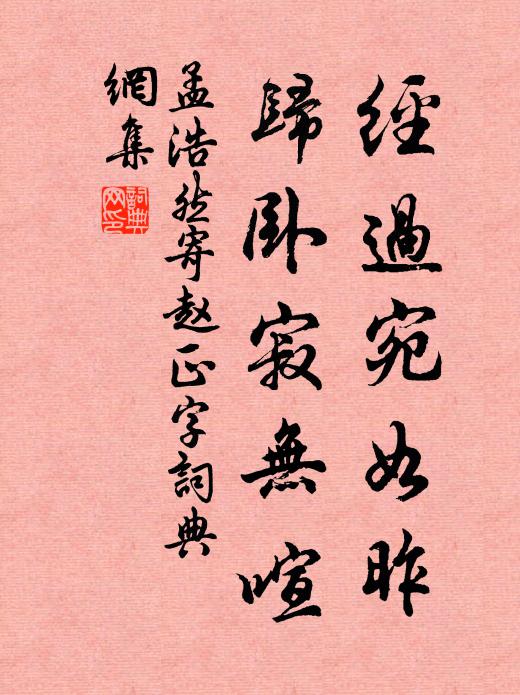 經過宛如昨
歸卧寂無喧
孟浩然寄赵正字詞典
網集
詞典
网印